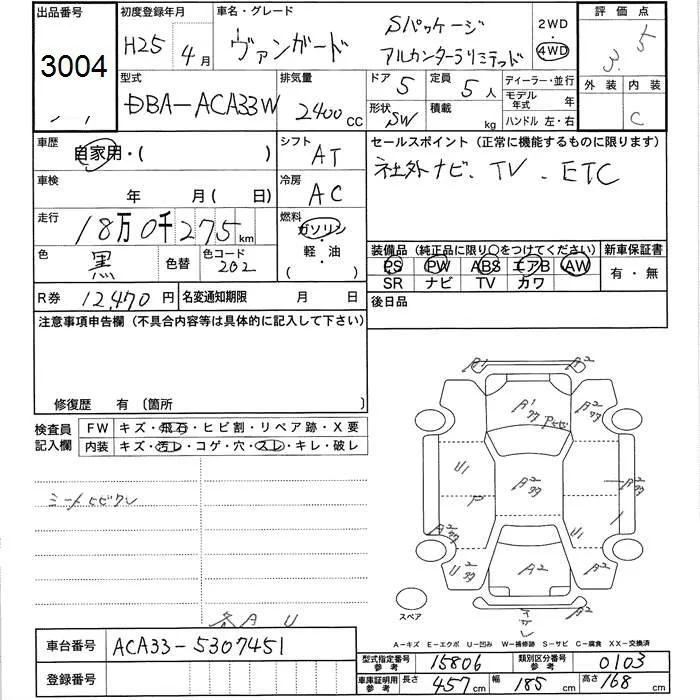 出品番号 初度登録年月 車名・グレード 2WD 評価点
3004 H25 4月 ヴァンガード Sパッケージ アルカンターラリミテッド 4WD 3.5
型式 排気量 ドア 5 定員 5人 ディーラー・並行 外装 内装
DBA-ACA33W 2400cc 形状 SW 積載 kg モデル年式 年 C
ハンドル 左・右
車歴 自家用・( ) シフト AT セールスポイント (正常に機能するものに限ります)
車検 年 月 ( 日) 冷房 AC 社外ナビ. TV . ETC
走行 18万0千275km 燃料 ガソリン
色 黒 色替 色コード 202 軽・油 ( ) 装備品 (純正品に限り○をつけてください) 新車保証書
PS PW ABS エアB AW 有・無
SR ナビ TV カワ
R券 12,470円 名変通知期限 月 日 後日品
注意事項申告欄 (不具合内容等は具体的に記入して下さい)
修復歴 有 〔箇所 〕
検査員記入欄 FW キズ・飛石・ヒビ割・リペア跡・X要
内装 キズ・汚レ・コゲ・穴・スレ・キレ・破レ
A1 A2
A1 A2
U1 P A2
A2 U1
U2 A2 A2
スペア
各A U
A-キズ E-エクボ U-凹み W-補修跡 S-サビ C-腐食 XX-交換済
車台番号 ACA33-5307451
型式指定番号 参考 15806 類別区分番号 参考 0103
登録番号 車庫証明用 参考 長さ 457cm 幅 185cm 高さ 168cm